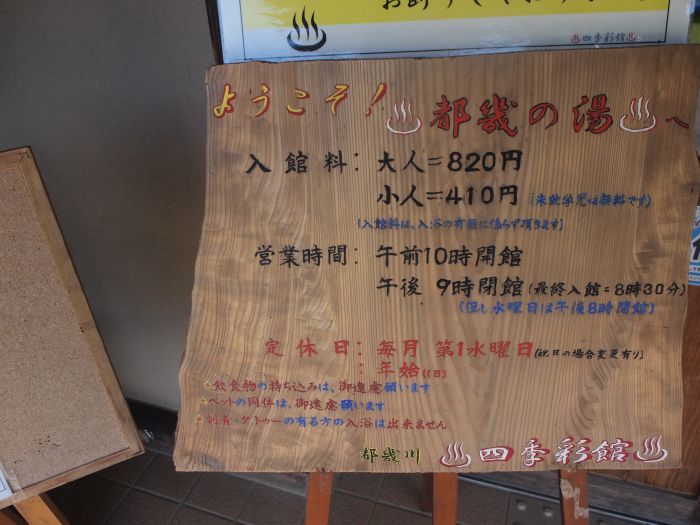 四季彩館
ようこそ! 都幾の湯へ
入館料: 大人=820円
小人=410円 (未就学児は無料です)
(入館料は、入浴の有無に係らず頂きます)
営業時間: 午前10時開館
午後 9時閉館 (最終入館=8時30分)
(但し水曜日は午後8時閉館)
定休日: 毎月 第1水曜日 (祝日の場合変更有り)
: 年始(1日)
※飲食物の持ち込みは、御遠慮願います
※ペットの同伴は、御遠慮願います
※刺青・タトゥーの有る方の入浴は出来ません
都幾川 四季彩館